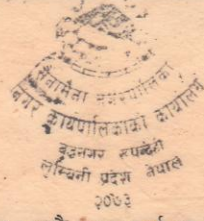 सैनामैना नगरपालिका
नगर कार्यपालिकाको कार्यालय
बुद्धनगर रुपन्देही
लुम्बिनी प्रदेश नेपाल
२०७३